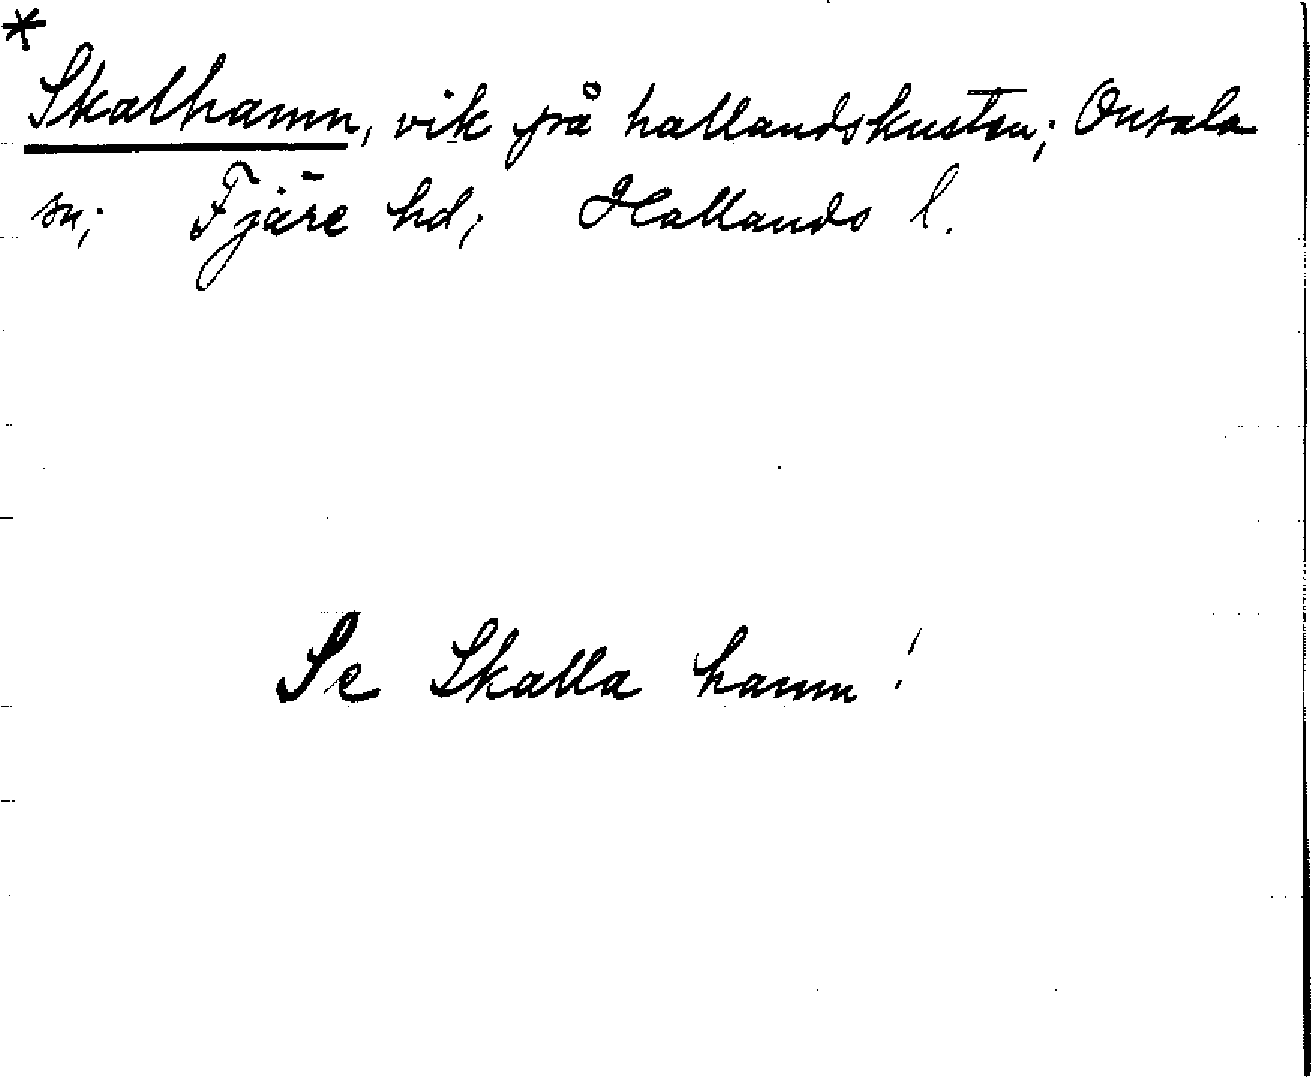 *
Skalhamn, vik på hallandskusten; Onsala
sn; Fjäre hd; Hallands l.
Se Skalla hamn!